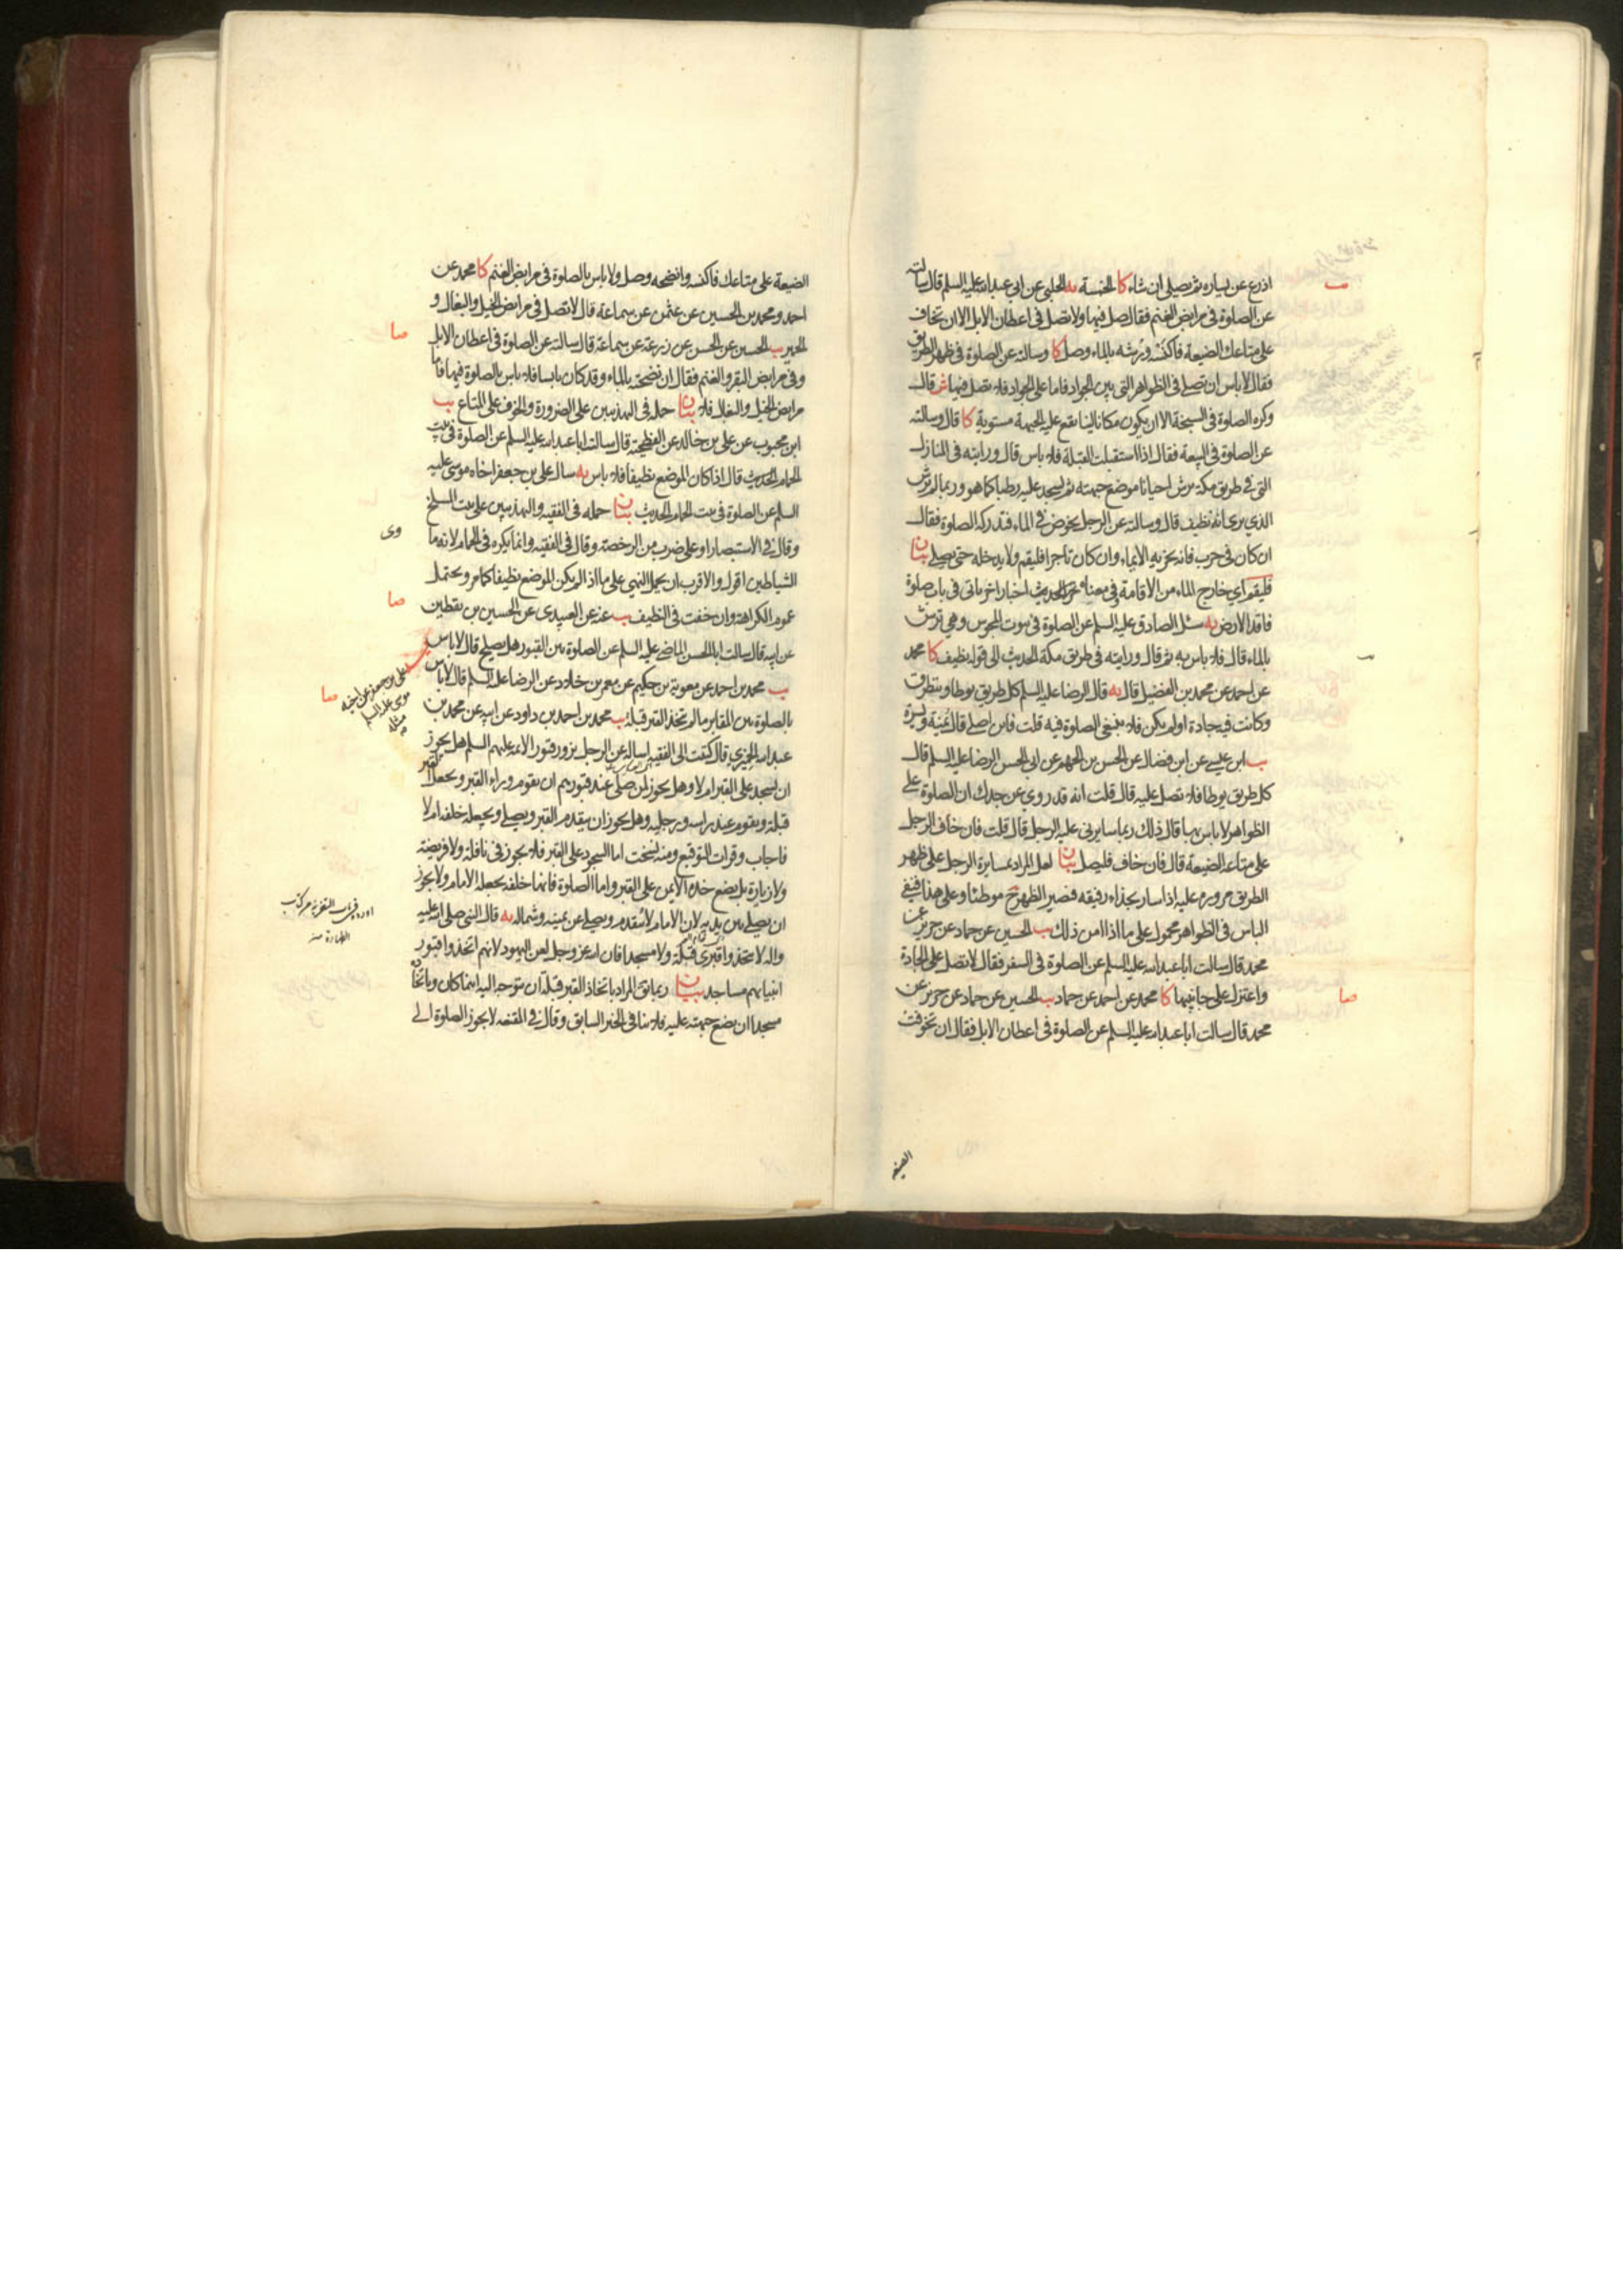 اذرع عن يساره ثم يصلى ان شاء كا الخمسة يه الحلبى عن ابى عبدالله عليه السلم قال سالته
عن الصلوة فى مرابض الغنم فقال صل فيها ولا تصل فى اعطان الابل الا ان تخاف
على متاعك الضيعة فاكنسه ورشه بالماء وصل كا وسالته عن الصلوة فى ظهر الطريق
فقال لا باس ان تصلى فى الظواهر التى بين الجواد فاما على الجواد فلا تصل فيها ش قال
وكره الصلوة فى السبخة الا ان يكون مكانا لينا تقع عليه الجبهة مستوية كا قال وسالته
عن الصلوة فى البيعة فقال اذا استقبلت القبلة فلا باس قال ورايته فى المنازل
التى فى طريق مكة يرش احيانا موضع جبهته ثم يسجد عليه رطبا كما هو وربما لم يرش
الذى يرى انه نظيف قال وسالته عن الرجل يخوض فى الماء فتدركه الصلوة فقال
ان كان فى حرب فانه يجزيه الايماء وان كان تاجرا فليقم ولا يدخله حتى يصلى بيان
فليقم اى خارج الماء من الاقامة وفى معنى اخر الحديث اخبار اخر تاتى فى باب صلوة
فاقد الارض يه سئل الصادق عليه السلم عن الصلوة فى بيوت المجوس وهى ترش
بالماء قال فلا باس به ثم قال ورايته فى طريق مكة الحديث الى قوله نظيف كا محمد
عن احمد عن محمد بن الفضيل قال يه قال الرضا عليه السلم كل طريق يوطا ويتطرق
وكانت فيه جادة او لم يكن فلا ينبغى الصلوة فيه قلت فاين اصلى قال يمنة ويسرة
يب ابن عيسى عن ابن فضال عن الحسن بن الجهم عن ابى الحسن الرضا عليه السلم قال
كل طريق يوطا فلا تصل عليه قال قلت انه قد روى عن جدك ان الصلوة على
الظواهر لا باس بها قال ذلك ربما سايرنى عليه الرجل قال قلت فان خاف الرجل
على متاعه الضيعة قال فان خاف فليصل بيان لعل المراد بمسايرة الرجل على ظهر
الطريق مروره عليه اذا ساير بحذاء رفيقه فصير الظهر ح موطئا وعلى هذا فنفى
الباس فى الظواهر محمول على ما اذا امن ذلك يب الحسين عن حماد عن حريز عن
محمد قال سالت ابا عبدالله عليه السلم عن الصلوة فى السفر فقال لا تصل على الجادة
واعتزل على جانبيها كا محمد عن احمد عن حماد يب الحسين عن حماد عن حريز عن
محمد قال سالت ابا عبدالله عليه السلم عن الصلوة فى اعطان الابل فقال ان تخوفت
صا
الضيعة
الضيعة على متاعك فاكنسه وانضحه وصل ولا باس بالصلوة فى مرابض الغنم كا محمد عن
احمد ومحمد بن الحسين عن عثمن عن سماعة قال لا تصل فى مرابض الخيل والبغال و
الحمير يب الحسين عن الحسن عن زرعة عن سماعة قال سالته عن الصلوة فى اعطان الابل
وفى مرابض البقر والغنم فقال ان نضحته بالماء وقد كان يابسا فلا باس بالصلوة فيها فاما
مرابض الخيل والبغال فلا بيان حمله فى التهذيبين على الضرورة والخوف على المتاع يب
ابن محبوب عن على بن خالد عن الفطحية قال سالت ابا عبدالله عليه السلم عن الصلوة فى بيت
الحمام الحديث قال اذا كان الموضع نظيفا فلا باس يه سال على بن جعفر اخاه موسى عليه
السلم عن الصلوة فى بيت الحمام الحديث بيان حمله فى الفقيه والتهذيبين على بيت المسلخ
وقال فى الاستبصار او على ضرب من الرخصة وقال فى الفقيه وانما يكره فى الحمام لانه ماوى
الشياطين اقول والاقرب ان يحمل النهى على ما اذا لم يكن الموضع نظيفا كما مر ويحتمل
عموم الكراهة وان خفت فى النظيف يب عنه عن العبيدى عن الحسين بن يقطين
عن ابيه قال سالت ابا الحسن الماضى عليه السلم عن الصلوة بين القبور هل يصلح قال لا باس
يب محمد بن احمد عن معوية بن حكيم عن معمر بن خلاد عن الرضا عليه السلم قال لا باس
بالصلوة بين المقابر ما لم تتخذ القبر قبلة يب محمد بن احمد بن داود عن ابيه عن محمد بن
عبدالله الحميرى قال كتبت الى الفقيه اساله عن الرجل يزور قبور الائمة عليهم السلم هل يجوز
ان يسجد على القبر ام لا وهل يجوز لمن صلى عند قبورهم ان يقوم وراء القبر ويجعل القبر
قبلة ويقوم عند راسه ورجليه وهل يجوز ان يتقدم القبر ويصلى ويجعله خلفه ام لا
فاجاب وقرات التوقيع ومنه نسخت اما السجود على القبر فلا يجوز فى نافلة ولا فريضة
ولا زيارة بل يضع خده الايمن على القبر واما الصلوة فانها خلفه يجعله الامام ولا يجوز
ان يصلى بين يديه لان الامام لا يتقدم ويصلى عن يمينه وشماله يه قال النبى صلى الله عليه
واله لا تتخذوا قبرى قبلة ولا مسجدا فان الله عز وجل لعن اليهود لانهم اتخذوا قبور
انبيائهم مساجد بيان ربما يق المراد باتخاذ القبر قبلة ان يتوجه اليه اينما كان وباتخاذه
مسجدا ان يضع جبهته عليه فلا ينافى الخبر السابق وقال فى المقنعه لا يجوز الصلوة الى
صا
صا
على بن جعفر عن اخيه
موسى عليه السلم
مثله
صا